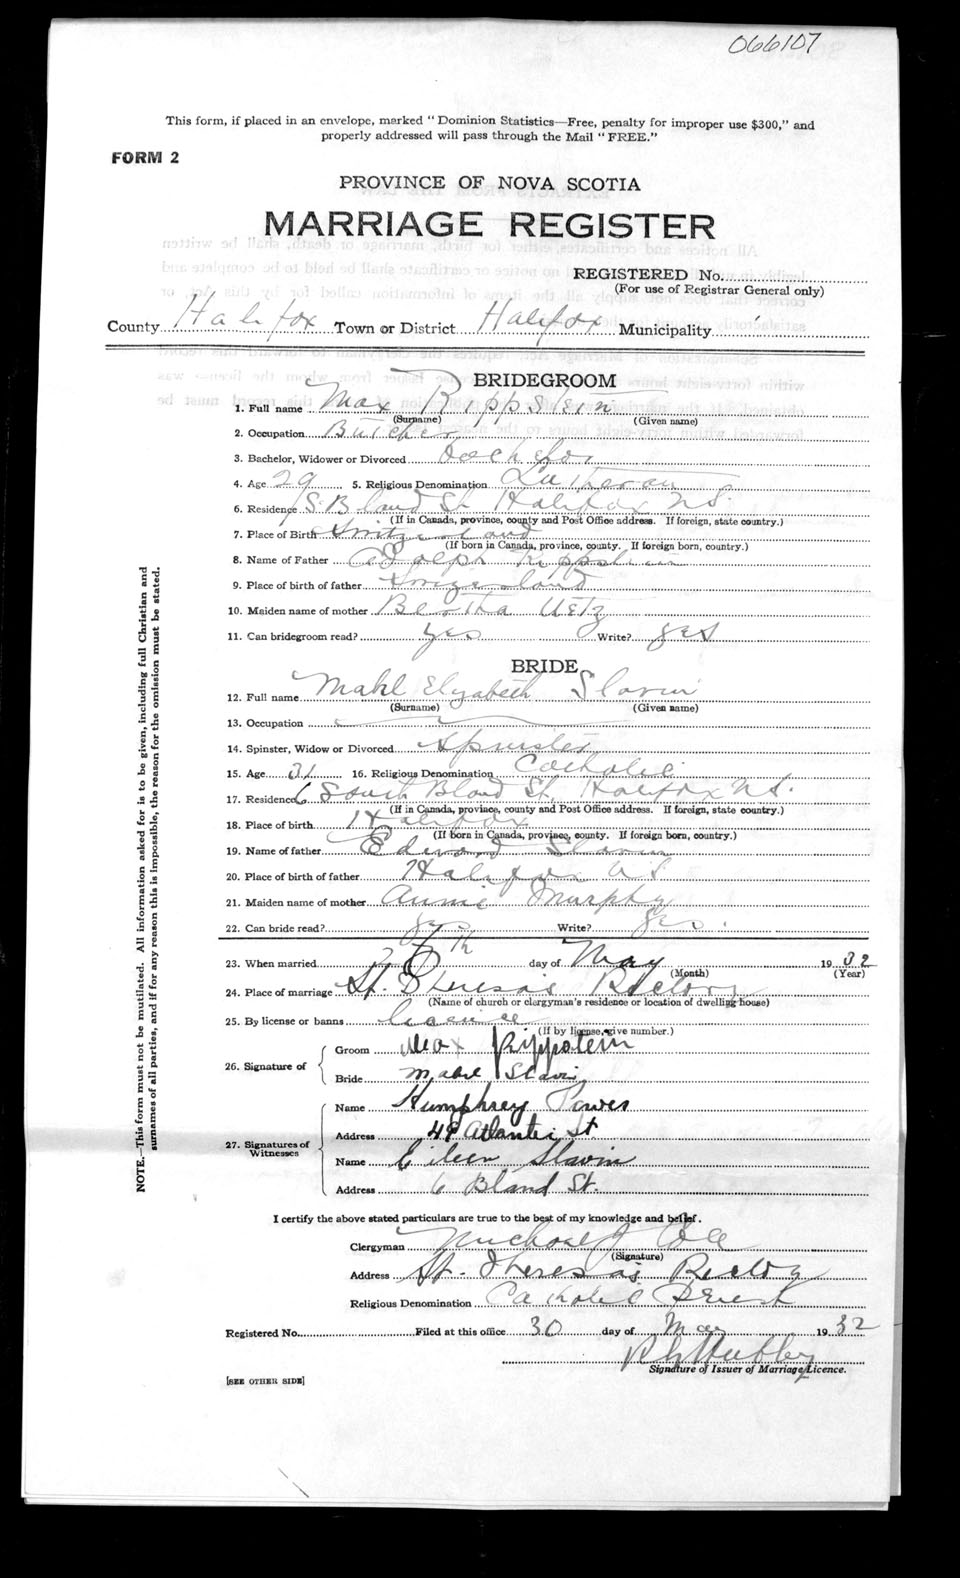 066107
This form, if placed in an envelope, marked "Dominion Statistics—Free, penalty for improper use $300," and
properly addressed will pass through the Mail "FREE."
FORM 2
PROVINCE OF NOVA SCOTIA
MARRIAGE REGISTER
REGISTERED No.
(For use of Registrar General only)
County Halifax Town or District Halifax Municipality
BRIDEGROOM
1. Full name Max Rippstein
(Surname) (Given name)
2. Occupation Butcher
3. Bachelor, Widower or Divorced Bachelor
4. Age 29 5. Religious Denomination Lutheran
6. Residence Bland St Halifax N.S.
(If in Canada, province, county and Post Office address. If foreign, state country.)
7. Place of Birth Switzerland
(If born in Canada, province, county. If foreign born, country.)
8. Name of Father Rippstein
9. Place of birth of father
10. Maiden name of mother Bertha Uetz
11. Can bridegroom read? yes Write? yes
BRIDE
12. Full name Elizabeth Slavin
(Surname) (Given name)
13. Occupation
14. Spinster, Widow or Divorced Spinster
15. Age 31 16. Religious Denomination Catholic
17. Residence 6 South Bland St. Halifax N.S.
(If in Canada, province, county and Post Office address. If foreign, state country.)
18. Place of birth Halifax
(If born in Canada, province, county. If foreign born, country.)
19. Name of father Edward Slavin
20. Place of birth of father Halifax N.S.
21. Maiden name of mother Annie Murphy
22. Can bride read? yes Write? yes.
23. When married day of May 1932
(Month) (Year)
24. Place of marriage St. Theresa's Rectory
(Name of church or clergyman's residence or location of dwelling house)
25. By license or banns licence
(If by license, give number.)
26. Signature of
Groom Max Rippstein
Bride Mabel Slavin
27. Signatures of Witnesses
Name Humphrey Power
Address 49 Atlantic St.
Name Eileen Slavin
Address 6 Bland St.
I certify the above stated particulars are true to the best of my knowledge and belief.
Clergyman
(Signature)
Address St. Theresa's Rectory
Religious Denomination Catholic Priest
Registered No. Filed at this office 30 day of May 1932
Signature of Issuer of Marriage Licence.
[SEE OTHER SIDE]
NOTE.—This form must not be mutilated. All information asked for is to be given, including full Christian and
surnames of all parties, and if for any reason this is impossible, the reason for the omission must be stated.